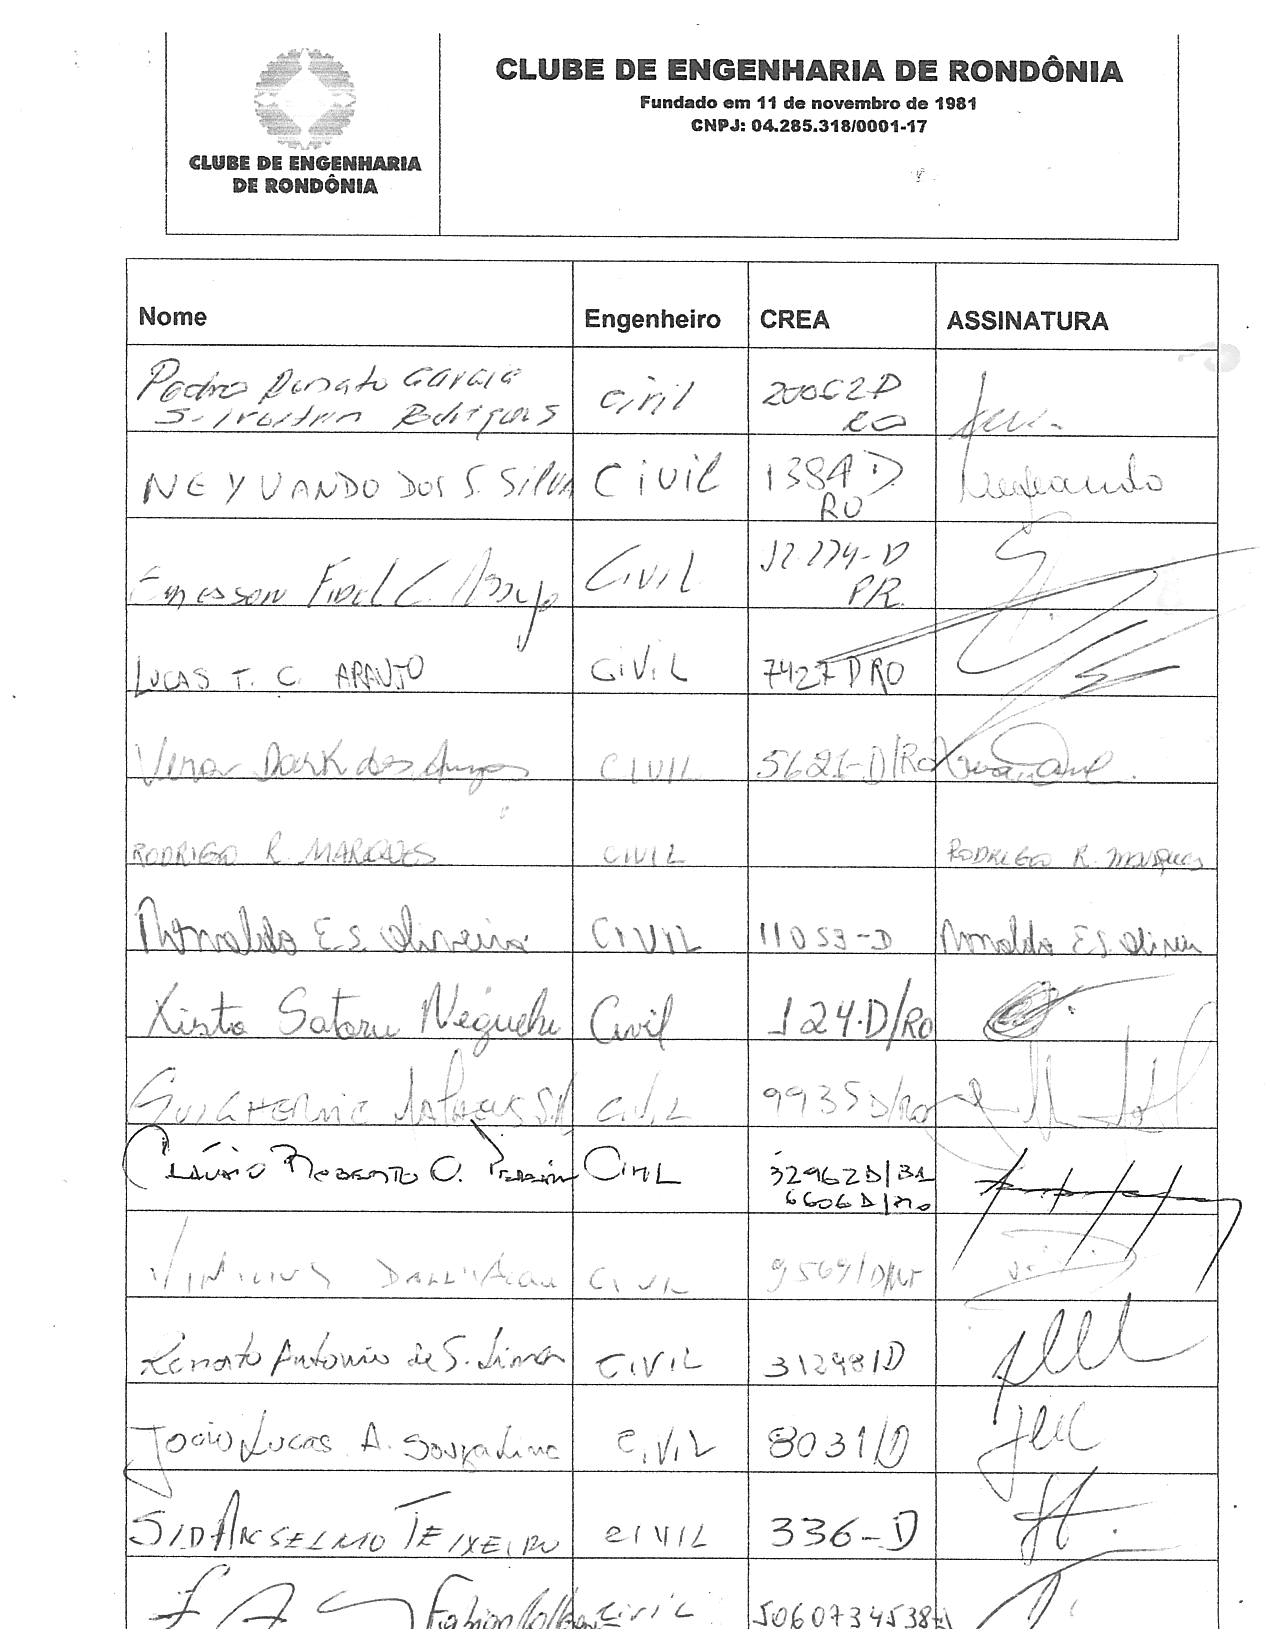 CLUBE DE ENGENHARIA
DE RONDÔNIA
CLUBE DE ENGENHARIA DE RONDÔNIA
Fundado em 11 de novembro de 1981
CNPJ: 04.285.318/0001-17
Nome Engenheiro CREA ASSINATURA
Pedro Renato Garcia Civil 20062D
RO
NEYVANDO DOS S. SILVA CIVIL 1384 D
RO
Emerson Fidel C. Civil 12.774-D
PR
LUCAS T. C. ARAUJO CIVIL 7427 D RO
dos Anjos CIVIL 5621-D/RO
RODRIGO R. MARQUES CIVIL RODRIGO R. Marques
Ronaldo E S. Oliveira CIVIL 11053-D Ronaldo E S. Oliveira
Xisto Satoru Neguchi Civil 124.D/RO
GUILHERME MATHEUS CIVIL 9935 D/RO
CLÁUDIO ROBERTO O. CIVIL 32962D/BA
6606D/RO
VINICIUS CIVIL
Renato Antonio de S. Lima CIVIL 31298/D
João Lucas A. Souza Lima CIVIL 8031/D
SID ANSELMO TEIXEIRA CIVIL 336-D
CIVIL